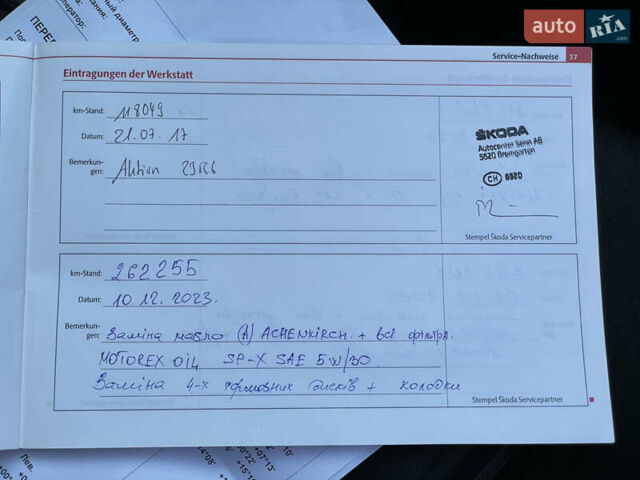 auto RIA.com
Service–Nachweise 37
Eintragungen der Werkstatt
km-Stand: 118049
Datum: 21.07.17
Bemerkungen: Aktion
ŠKODA
Autocenter Senn AB
5620 Bremgarten
CH 6920
Stempel Škoda Servicepartner
km-Stand: 262255
Datum: 10.12.2023.
Bemerkungen: Заміна масло (A) ACHENKIRCH. + всі фільтра.
MOTOREX OIL SP-X SAE 5W/30.
Заміна 4-х тормозних дисків + колодки
Stempel Škoda Servicepartner